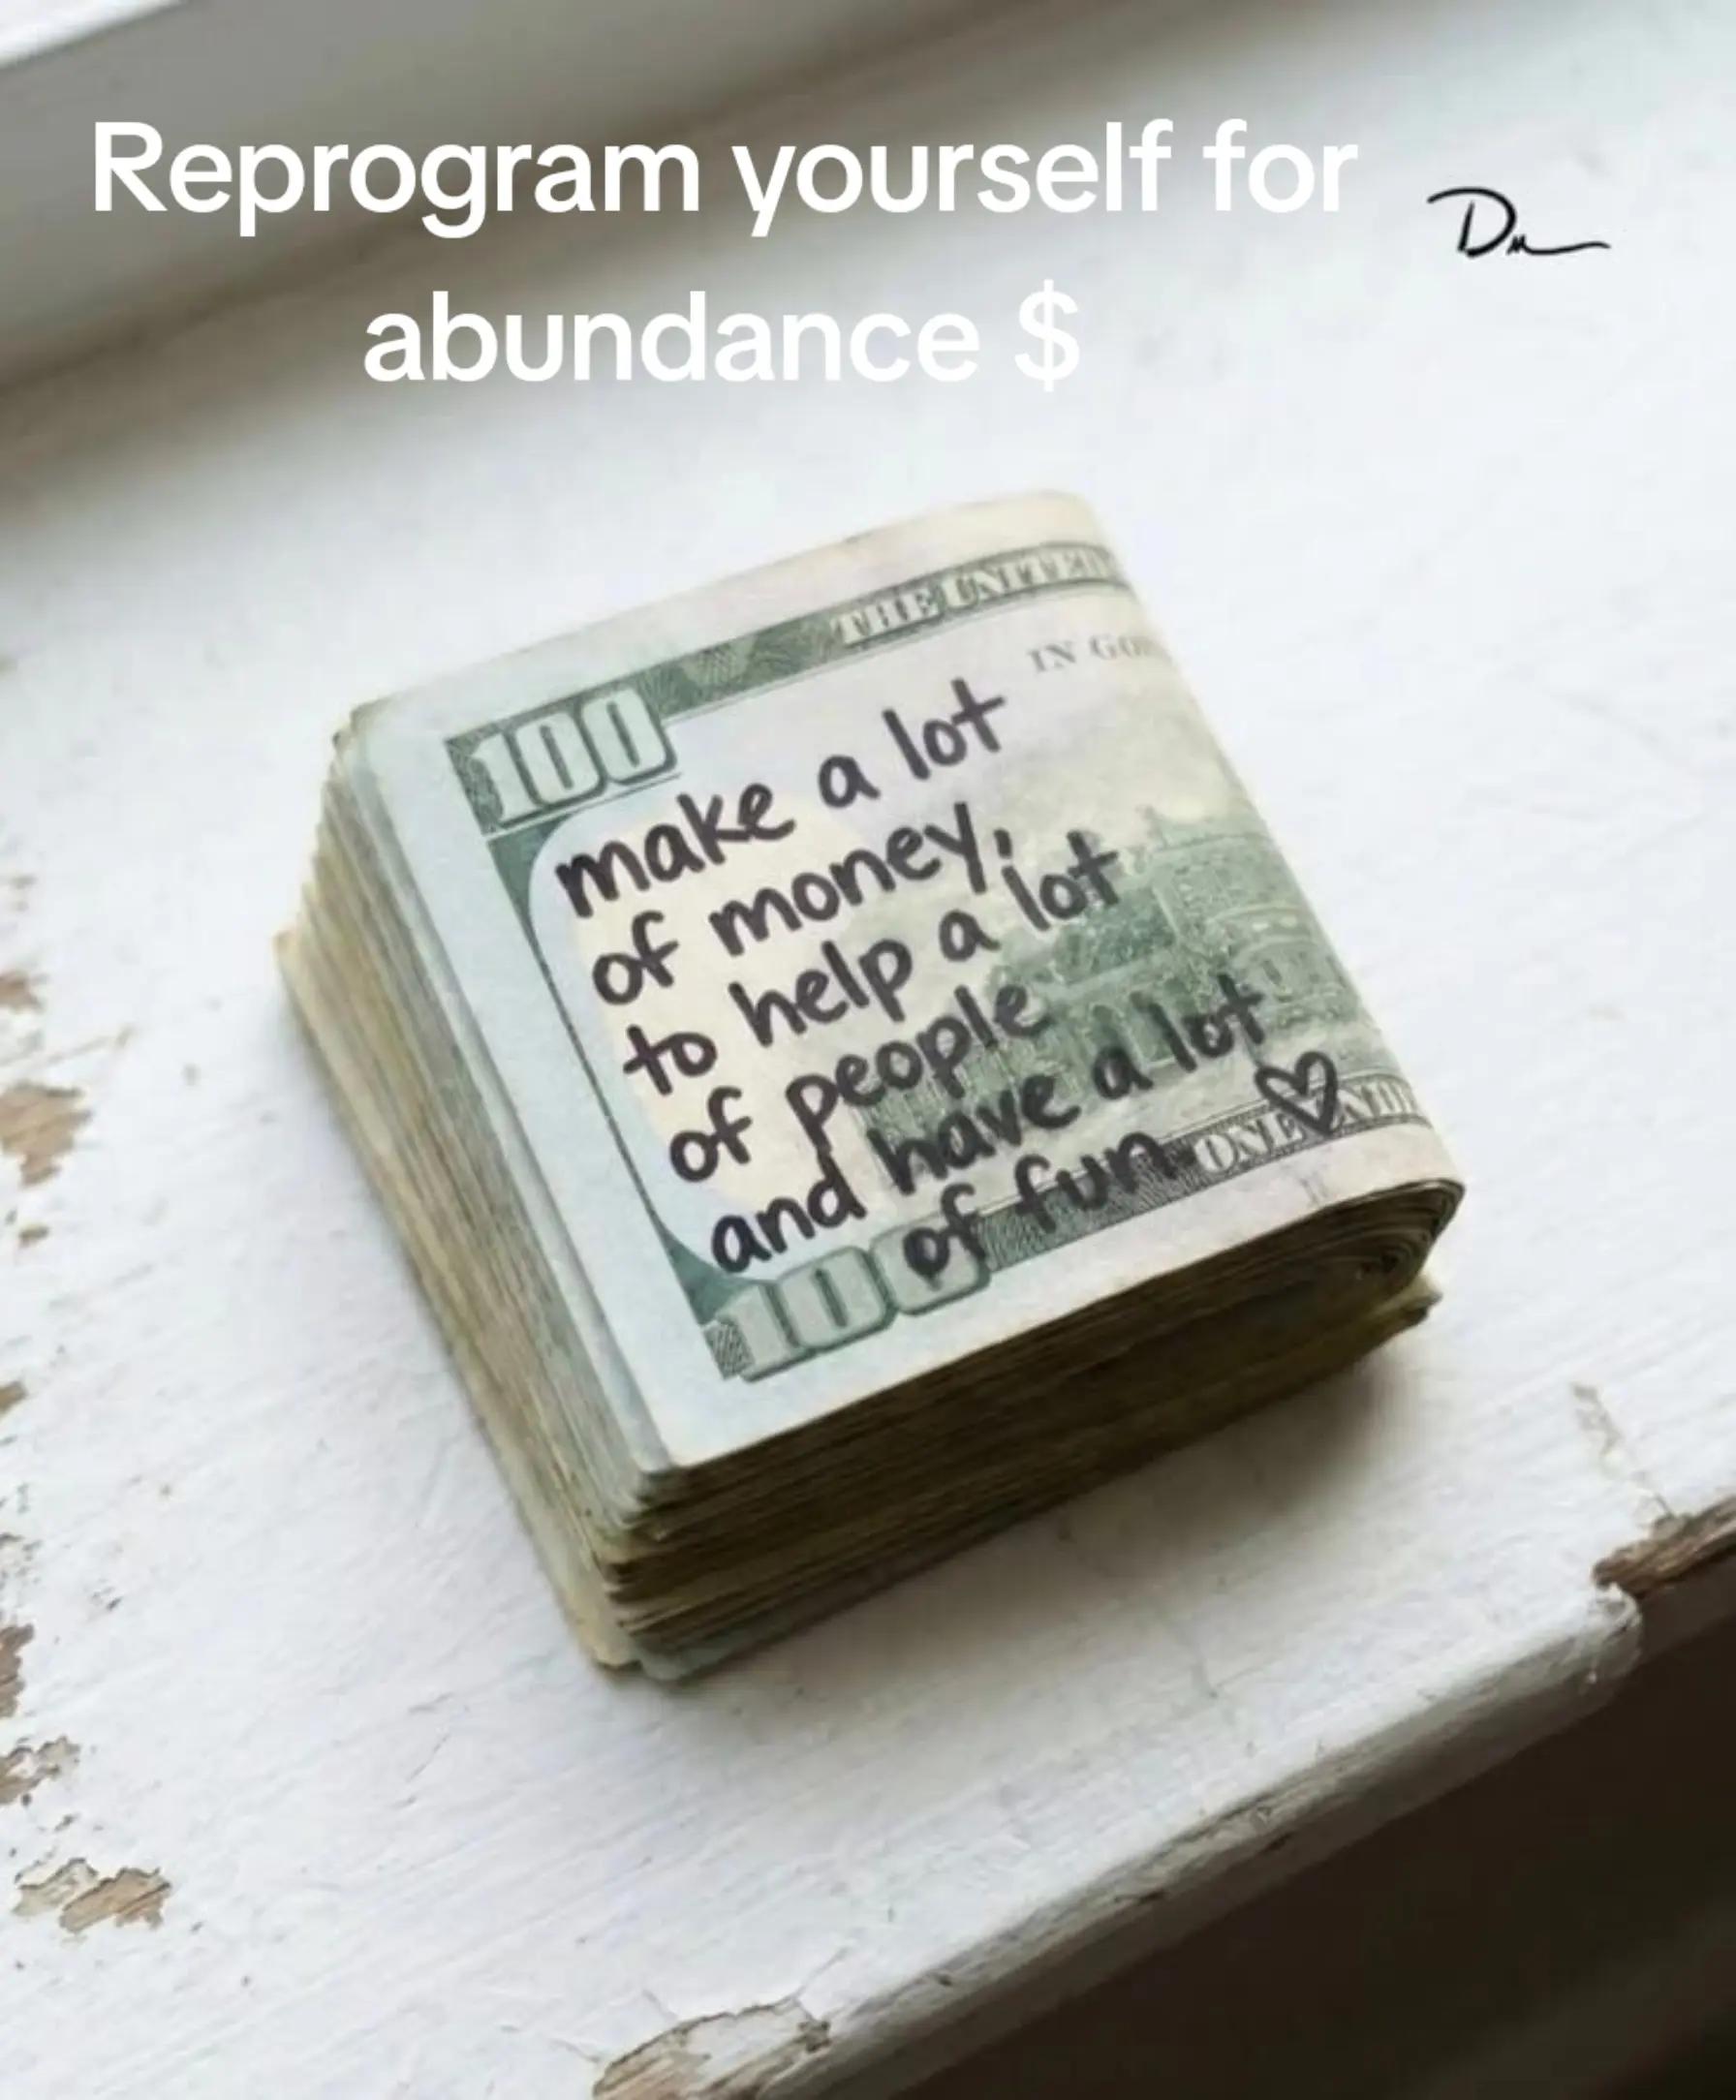 Reprogram yourself for
abundance $
THE UNITED
IN GO
100
make a lot
of money,
to help a lot
of people
and have a lot
of fun. ♡
ONE
100